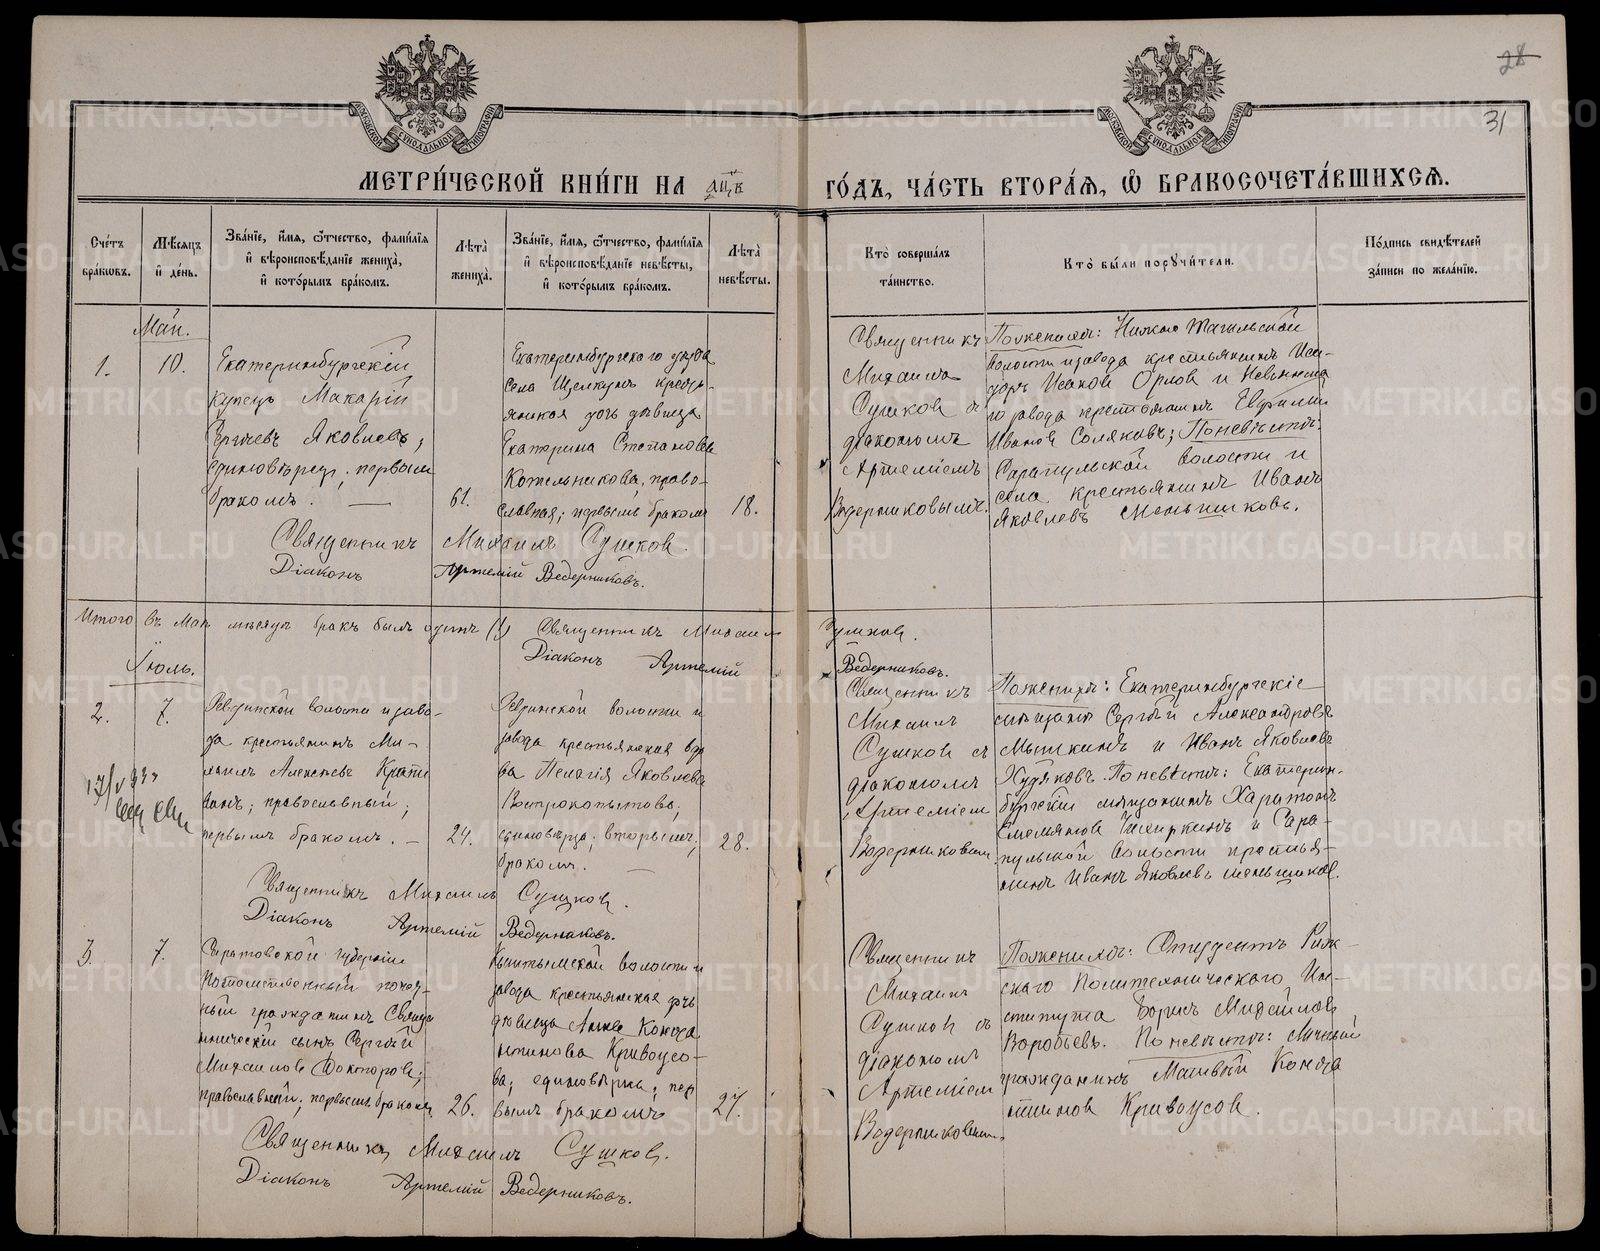 28
31
МЕТРИ́ЧЕСКОЙ КНИ́ГИ НА
ГО́ДЪ, ЧА́СТЬ ВТОРА́Я, Ѡ БРАКОСОЧЕТА́ВШИХСЯ.
Сче́тъ бра́ковъ.
Мѣ́сяцъ и҆ де́нь.
Зва́нїе, и҆́мя, ѻ҆́тчество, фами́лїя и҆ вѣроисповѣ́данїе жениха̀, и҆ кото́рымъ бра́комъ.
Лѣта̀ жениха̀.
Зва́нїе, и҆́мя, ѻ҆́тчество, фами́лїя и҆ вѣроисповѣ́данїе невѣ́сты, и҆ кото́рымъ бра́комъ.
Лѣта̀ невѣ́сты.
Кто̀ соверша́лъ та́инство.
Кто̀ бы́ли порꙋчи́тели.
По́дпись свидѣ́телей за́писи по жела́нїю.
Май.
1.
10.
Екатеринбургскій
купецъ Макарій
Сергѣевъ Яковлевъ,
единовѣрецъ, первымъ
бракомъ.
61.
Екатеринбургскаго уѣзда
села Щелкунъ кресть-
янская дочь дѣвица
Екатерина Степановна
Котельникова, право-
славная, первымъ бракомъ
18.
Священникъ
Михаилъ
Сушковъ съ
діакономъ
Артеміемъ
Ведерниковымъ.
По женихѣ: Нижне Тагильской
волости и завода крестьянинъ Иси-
доръ Исаковъ Орловъ и Невьянска-
го завода крестьянинъ Евфимій
Ивановъ Соляковъ; По невѣстѣ:
Сарапульской волости и
села крестьянинъ Иванъ
Яковлевъ Меньшиковъ.
Священникъ Михаилъ Сушковъ.
Діаконъ Артемій Ведерниковъ.
Итого въ Маѣ мѣсяцѣ бракъ былъ одинъ (1) Священникъ Михаилъ Сушковъ.
Діаконъ Артемій Ведерниковъ.
Іюль.
2.
7.
Ревдинской волости и заво-
да крестьянинъ Ми-
хаилъ Алексѣевъ
православный,
первымъ бракомъ.
24.
Ревдинской волости и
завода крестьянская вдо
ва Пелагія Яковлева
единовѣрка, вторымъ
бракомъ.
28.
Священникъ
Михаилъ
Сушковъ съ
діакономъ
Артеміемъ
Ведерниковымъ.
По женихѣ: Екатеринбургскіе
мѣщане Сергѣй Александровъ
Мышкинъ и Иванъ Яковлевъ
Худяковъ. По невѣстѣ: Екатерин-
бургскій мѣщанинъ Харитонъ
Емельяновъ Чиркинъ и Сара-
пульской волости крестья-
нинъ Иванъ Яковлевъ Меньшиковъ.
Священникъ Михаилъ Сушковъ.
Діаконъ Артемій Ведерниковъ.
3.
7.
Саратовской губерніи
Потомственный почет-
ный гражданинъ Священ
ническій сынъ Сергѣй
Михаиловъ Докторовъ,
православный, первымъ бракомъ
26.
Кыштымской волости и
завода крестьянская дочь
дѣвица Анна Конста
нтинова Кривоусо-
ва, единовѣрка, пер
вымъ бракомъ
27.
Священникъ
Михаилъ
Сушковъ съ
діакономъ
Артеміемъ
Ведерниковымъ.
По женихѣ: Студентъ Риж-
скаго Политехническаго Ин-
ститута Борисъ Михаиловъ
Воробьевъ. По невѣстѣ: Личный
гражданинъ Матвѣй Конста
нтиновъ Кривоусовъ.
Священникъ Михаилъ Сушковъ.
Діаконъ Артемій Ведерниковъ.
METRIKI.GASO-URAL.RU